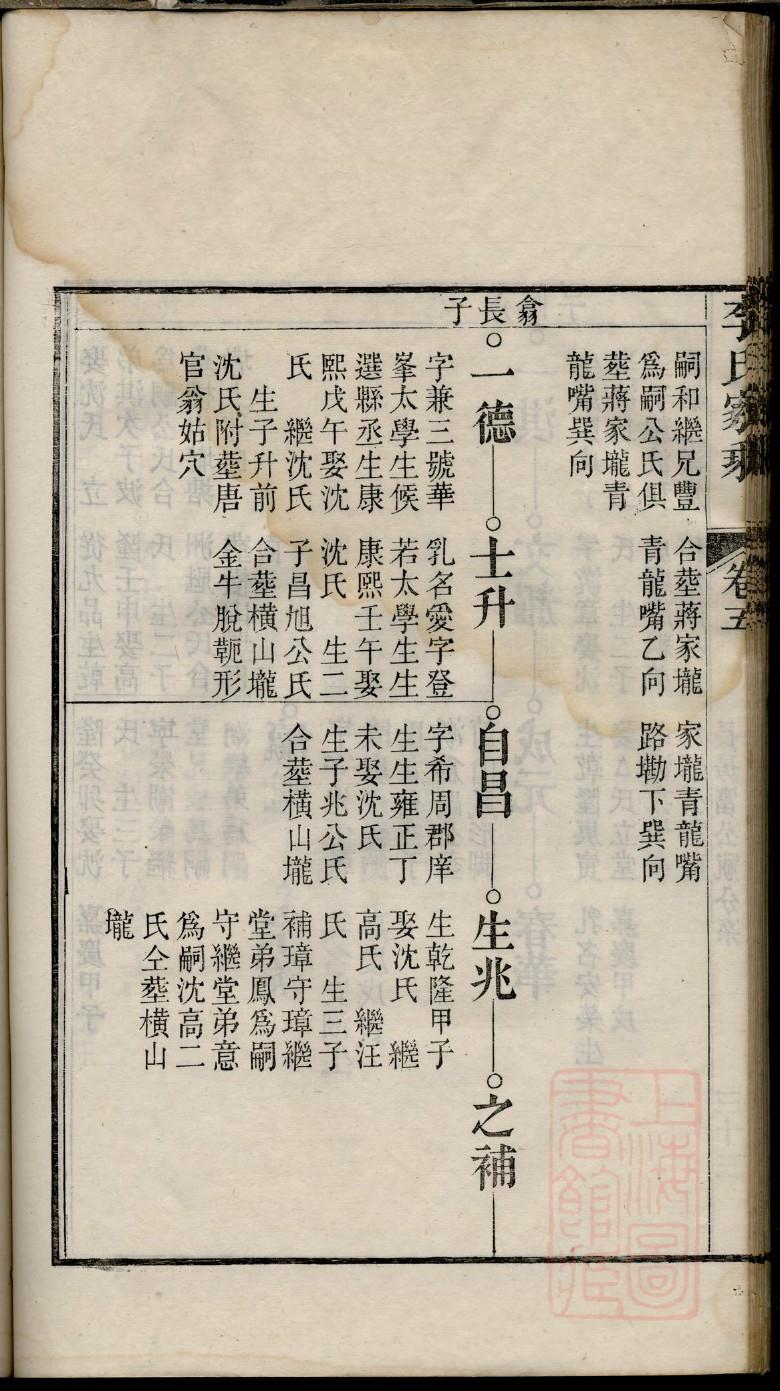 李氏家乘
卷五
嗣和繼兄豐
爲嗣公氏俱
塟蔣家壠青
龍嘴巽向
合塟蔣家壠
青龍嘴乙向
家壠青龍嘴
路墈下巽向
翕長子
一德
士升
自昌
生兆
之補
字兼三號華
峯太學生候
選縣丞生康
熙戊午娶沈
氏　繼沈氏
生子升前
沈氏附塟唐
官翁姑穴
乳名愛字登
若太學生生
康熙壬午娶
沈氏　生二
子昌旭公氏
合塟横山壠
金牛脫軛形
字希周郡庠
生生雍正丁
未娶沈氏
生子兆公氏
合塟横山壠
生乾隆甲子
娶沈氏　繼
高氏　繼汪
氏　生三子
補璋守璋繼
堂弟鳳爲嗣
守繼堂弟意
爲嗣沈高二
氏仝塟横山
壠
上海圖
書館藏